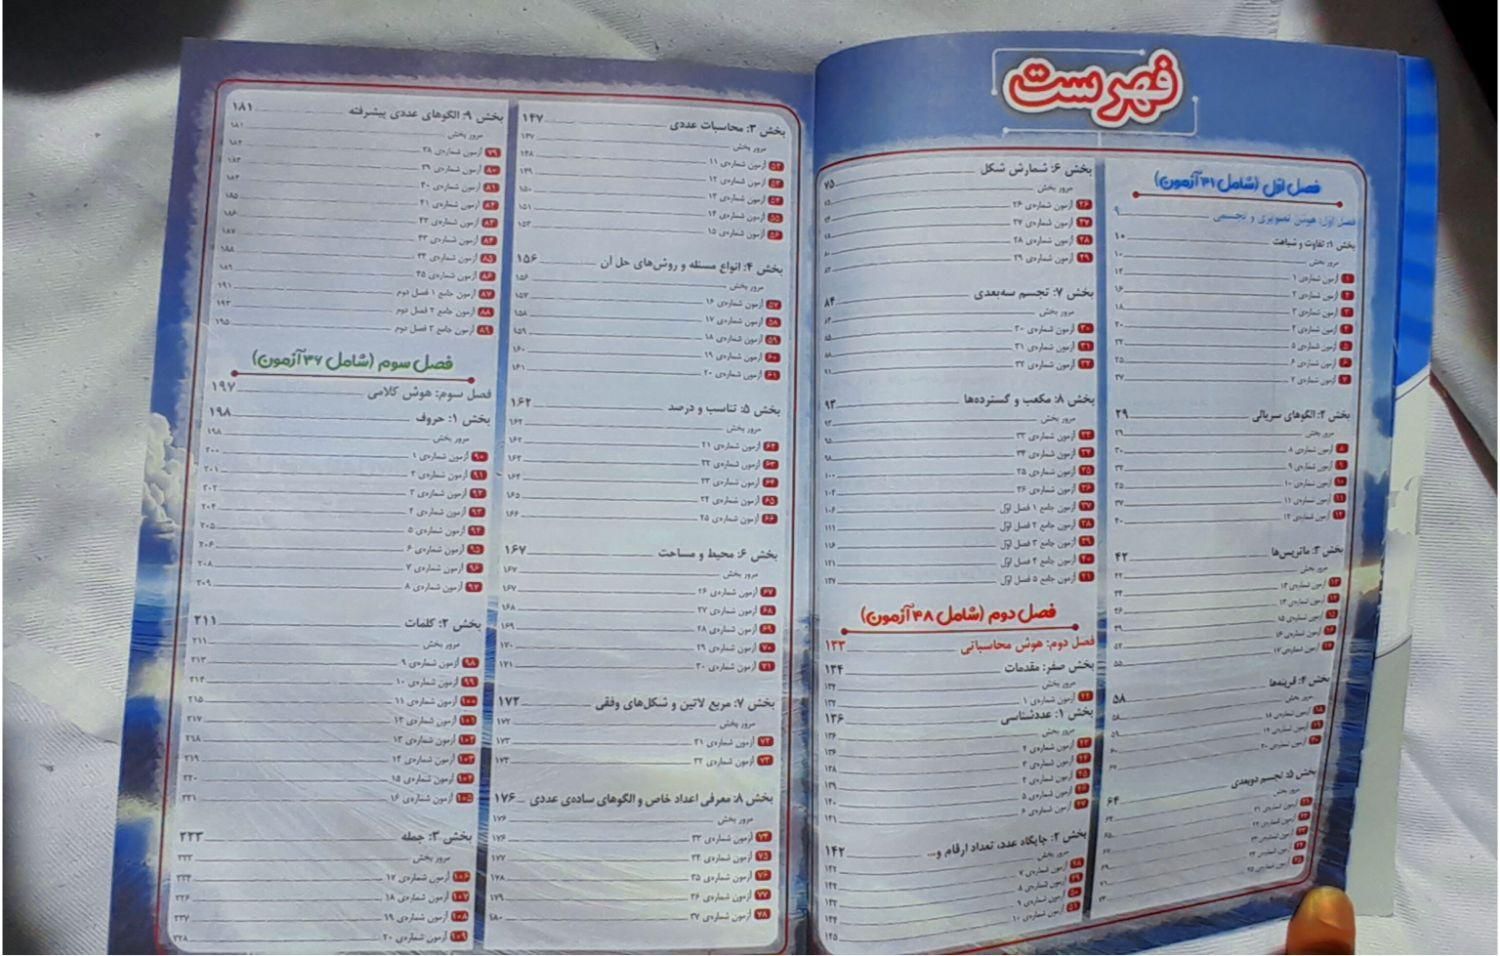 فهرست
فصل اول (شامل ۴۱ آزمون)
فصل اول: هوش تصویری و تجسمی ۹
بخش ۱: تفاوت و شباهت ۱۰
مرور بخش ۱۰
۱ آزمون شماره‌ی ۱
۲ آزمون شماره‌ی ۲
۳ آزمون شماره‌ی ۳
۴ آزمون شماره‌ی ۴
۵ آزمون شماره‌ی ۵
۶ آزمون شماره‌ی ۶
۷ آزمون شماره‌ی ۷
بخش ۲: الگوهای سریالی ۲۹
مرور بخش ۲۹
۸ آزمون شماره‌ی ۸
۹ آزمون شماره‌ی ۹
۱۰ آزمون شماره‌ی ۱۰
۱۱ آزمون شماره‌ی ۱۱
۱۲ آزمون شماره‌ی ۱۲
بخش ۳: ماتریس‌ها ۴۲
مرور بخش ۴۲
۱۳ آزمون شماره‌ی ۱۳
۱۴ آزمون شماره‌ی ۱۴
۱۵ آزمون شماره‌ی ۱۵
۱۶ آزمون شماره‌ی ۱۶
۱۷ آزمون شماره‌ی ۱۷
بخش ۴: قرینه‌ها ۵۸
مرور بخش ۵۸
۱۸ آزمون شماره‌ی ۱۸
۱۹ آزمون شماره‌ی ۱۹
۲۰ آزمون شماره‌ی ۲۰
بخش ۵: تجسم دوبعدی ۶۴
مرور بخش ۶۴
۲۱ آزمون شماره‌ی ۲۱
۲۲ آزمون شماره‌ی ۲۲
۲۳ آزمون شماره‌ی ۲۳
۲۴ آزمون شماره‌ی ۲۴
۲۵ آزمون شماره‌ی ۲۵
بخش ۶: شمارش شکل ۷۵
مرور بخش ۷۵
۲۶ آزمون شماره‌ی ۲۶
۲۷ آزمون شماره‌ی ۲۷
۲۸ آزمون شماره‌ی ۲۸
۲۹ آزمون شماره‌ی ۲۹
بخش ۷: تجسم سه‌بعدی ۸۴
مرور بخش ۸۴
۳۰ آزمون شماره‌ی ۳۰
۳۱ آزمون شماره‌ی ۳۱
۳۲ آزمون شماره‌ی ۳۲
بخش ۸: مکعب و گسترده‌ها ۹۳
مرور بخش ۹۳
۳۳ آزمون شماره‌ی ۳۳
۳۴ آزمون شماره‌ی ۳۴
۳۵ آزمون شماره‌ی ۳۵ ۱۰۰
۳۶ آزمون شماره‌ی ۳۶
۳۷ آزمون جامع ۱ فصل اول ۱۰۶
۳۸ آزمون جامع ۲ فصل اول ۱۱۱
۳۹ آزمون جامع ۳ فصل اول ۱۱۶
۴۰ آزمون جامع ۴ فصل اول ۱۲۱
۴۱ آزمون جامع ۵ فصل اول ۱۲۷
فصل دوم (شامل ۴۸ آزمون)
فصل دوم: هوش محاسباتی ۱۳۳
بخش صفر: مقدمات ۱۳۴
مرور بخش ۱۳۴
۴۲ آزمون شماره‌ی ۱
بخش ۱: عددشناسی ۱۳۶
مرور بخش ۱۳۶
۴۳ آزمون شماره‌ی ۲ ۱۳۶
۴۴ آزمون شماره‌ی ۳ ۱۳۸
۴۵ آزمون شماره‌ی ۴ ۱۳۹
۴۶ آزمون شماره‌ی ۵ ۱۴۰
۴۷ آزمون شماره‌ی ۶ ۱۴۱
بخش ۲: جایگاه عدد، تعداد ارقام و... ۱۴۲
مرور بخش ۱۴۲
۴۸ آزمون شماره‌ی ۷
۴۹ آزمون شماره‌ی ۸
۵۰ آزمون شماره‌ی ۹
۵۱ آزمون شماره‌ی ۱۰
بخش ۳: محاسبات عددی ۱۴۷
مرور بخش ۱۴۷
۵۲ آزمون شماره‌ی ۱۱ ۱۴۸
۵۳ آزمون شماره‌ی ۱۲ ۱۴۹
۵۴ آزمون شماره‌ی ۱۳ ۱۵۰
۵۵ آزمون شماره‌ی ۱۴ ۱۵۱
۵۶ آزمون شماره‌ی ۱۵ ۱۵۳
بخش ۴: انواع مسئله و روش‌های حل آن ۱۵۶
مرور بخش ۱۵۶
۵۷ آزمون شماره‌ی ۱۶ ۱۵۷
۵۸ آزمون شماره‌ی ۱۷ ۱۵۸
۵۹ آزمون شماره‌ی ۱۸ ۱۵۹
۶۰ آزمون شماره‌ی ۱۹ ۱۶۰
۶۱ آزمون شماره‌ی ۲۰ ۱۶۱
بخش ۵: تناسب و درصد ۱۶۲
مرور بخش ۱۶۲
۶۲ آزمون شماره‌ی ۲۱ ۱۶۲
۶۳ آزمون شماره‌ی ۲۲ ۱۶۳
۶۴ آزمون شماره‌ی ۲۳ ۱۶۴
۶۵ آزمون شماره‌ی ۲۴ ۱۶۵
۶۶ آزمون شماره‌ی ۲۵ ۱۶۶
بخش ۶: محیط و مساحت ۱۶۷
مرور بخش ۱۶۷
۶۷ آزمون شماره‌ی ۲۶ ۱۶۷
۶۸ آزمون شماره‌ی ۲۷ ۱۶۸
۶۹ آزمون شماره‌ی ۲۸ ۱۶۹
۷۰ آزمون شماره‌ی ۲۹ ۱۷۰
۷۱ آزمون شماره‌ی ۳۰ ۱۷۱
بخش ۷: مربع لاتین و شکل‌های وفقی ۱۷۲
مرور بخش ۱۷۲
۷۲ آزمون شماره‌ی ۳۱ ۱۷۳
۷۳ آزمون شماره‌ی ۳۲ ۱۷۴
بخش ۸: معرفی اعداد خاص و الگوهای ساده‌ی عددی ۱۷۶
مرور بخش ۱۷۶
۷۴ آزمون شماره‌ی ۳۳ ۱۷۶
۷۵ آزمون شماره‌ی ۳۴ ۱۷۷
۷۶ آزمون شماره‌ی ۳۵ ۱۷۸
۷۷ آزمون شماره‌ی ۳۶ ۱۷۹
۷۸ آزمون شماره‌ی ۳۷ ۱۸۰
بخش ۹: الگوهای عددی پیشرفته ۱۸۱
مرور بخش ۱۸۱
۷۹ آزمون شماره‌ی ۳۸ ۱۸۲
۸۰ آزمون شماره‌ی ۳۹ ۱۸۳
۸۱ آزمون شماره‌ی ۴۰ ۱۸۴
۸۲ آزمون شماره‌ی ۴۱ ۱۸۵
۸۳ آزمون شماره‌ی ۴۲ ۱۸۶
۸۴ آزمون شماره‌ی ۴۳ ۱۸۷
۸۵ آزمون شماره‌ی ۴۴ ۱۸۸
۸۶ آزمون شماره‌ی ۴۵ ۱۸۹
۸۷ آزمون جامع ۱ فصل دوم ۱۹۱
۸۸ آزمون جامع ۲ فصل دوم ۱۹۳
۸۹ آزمون جامع ۳ فصل دوم ۱۹۵
فصل سوم (شامل ۳۶ آزمون)
فصل سوم: هوش کلامی ۱۹۷
بخش ۱: حروف ۱۹۸
مرور بخش ۱۹۸
۹۰ آزمون شماره‌ی ۱ ۲۰۰
۹۱ آزمون شماره‌ی ۲ ۲۰۱
۹۲ آزمون شماره‌ی ۳ ۲۰۲
۹۳ آزمون شماره‌ی ۴ ۲۰۴
۹۴ آزمون شماره‌ی ۵ ۲۰۵
۹۵ آزمون شماره‌ی ۶ ۲۰۶
۹۶ آزمون شماره‌ی ۷ ۲۰۸
۹۷ آزمون شماره‌ی ۸ ۲۰۹
بخش ۲: کلمات ۲۱۱
مرور بخش ۲۱۱
۹۸ آزمون شماره‌ی ۹ ۲۱۳
۹۹ آزمون شماره‌ی ۱۰ ۲۱۴
۱۰۰ آزمون شماره‌ی ۱۱ ۲۱۵
۱۰۱ آزمون شماره‌ی ۱۲ ۲۱۷
۱۰۲ آزمون شماره‌ی ۱۳ ۲۱۸
۱۰۳ آزمون شماره‌ی ۱۴ ۲۱۹
۱۰۴ آزمون شماره‌ی ۱۵ ۲۲۰
۱۰۵ آزمون شماره‌ی ۱۶ ۲۲۱
بخش ۳: جمله ۲۲۳
مرور بخش ۲۲۳
۱۰۶ آزمون شماره‌ی ۱۷ ۲۲۴
۱۰۷ آزمون شماره‌ی ۱۸ ۲۲۶
۱۰۸ آزمون شماره‌ی ۱۹ ۲۲۷
۱۰۹ آزمون شماره‌ی ۲۰ ۲۲۸